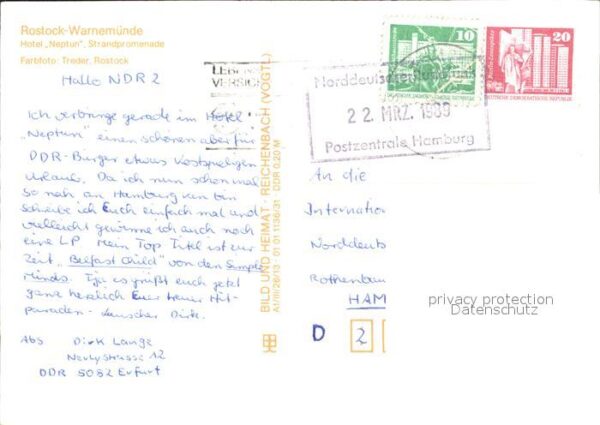 Rostock-Warnemünde
Hotel „Neptun", Strandpromenade
Farbfoto: Treder, Rostock
Hallo NDR 2
Ich verbringe gerade im Hotel
„Neptun" einen schönen aber für
DDR-Bürger etwas kostspieligen
Urlaub. Da ich nun schon mal
so nah an Hamburg ran bin
schreibe ich Euch einfach mal und
vielleicht gewinne ich auch noch
eine LP. Mein Top Titel ist zur
Zeit „Belfast Child" von den Simple
Minds. Tja es grüßt euch jetzt
ganz herzlich Euer treuer Hit-
paraden-Lauscher Dirk.
Abs Dirk Lange
12
DDR 5082 Erfurt
BILD UND HEIMAT · REICHENBACH (VOGTL)
A1/III/26/13 01 01 1136/31 · DDR 0,20 M
VERSIC
10
20
DEUTSCHE DEMOKRATISCHE REPUBLIK
Norddeutscher Rundfunk
22. MRZ. 1989
Postzentrale Hamburg
An die
Internation
Norddeuts
Rothenbau
HAM
D 2
privacy protection
Datenschutz